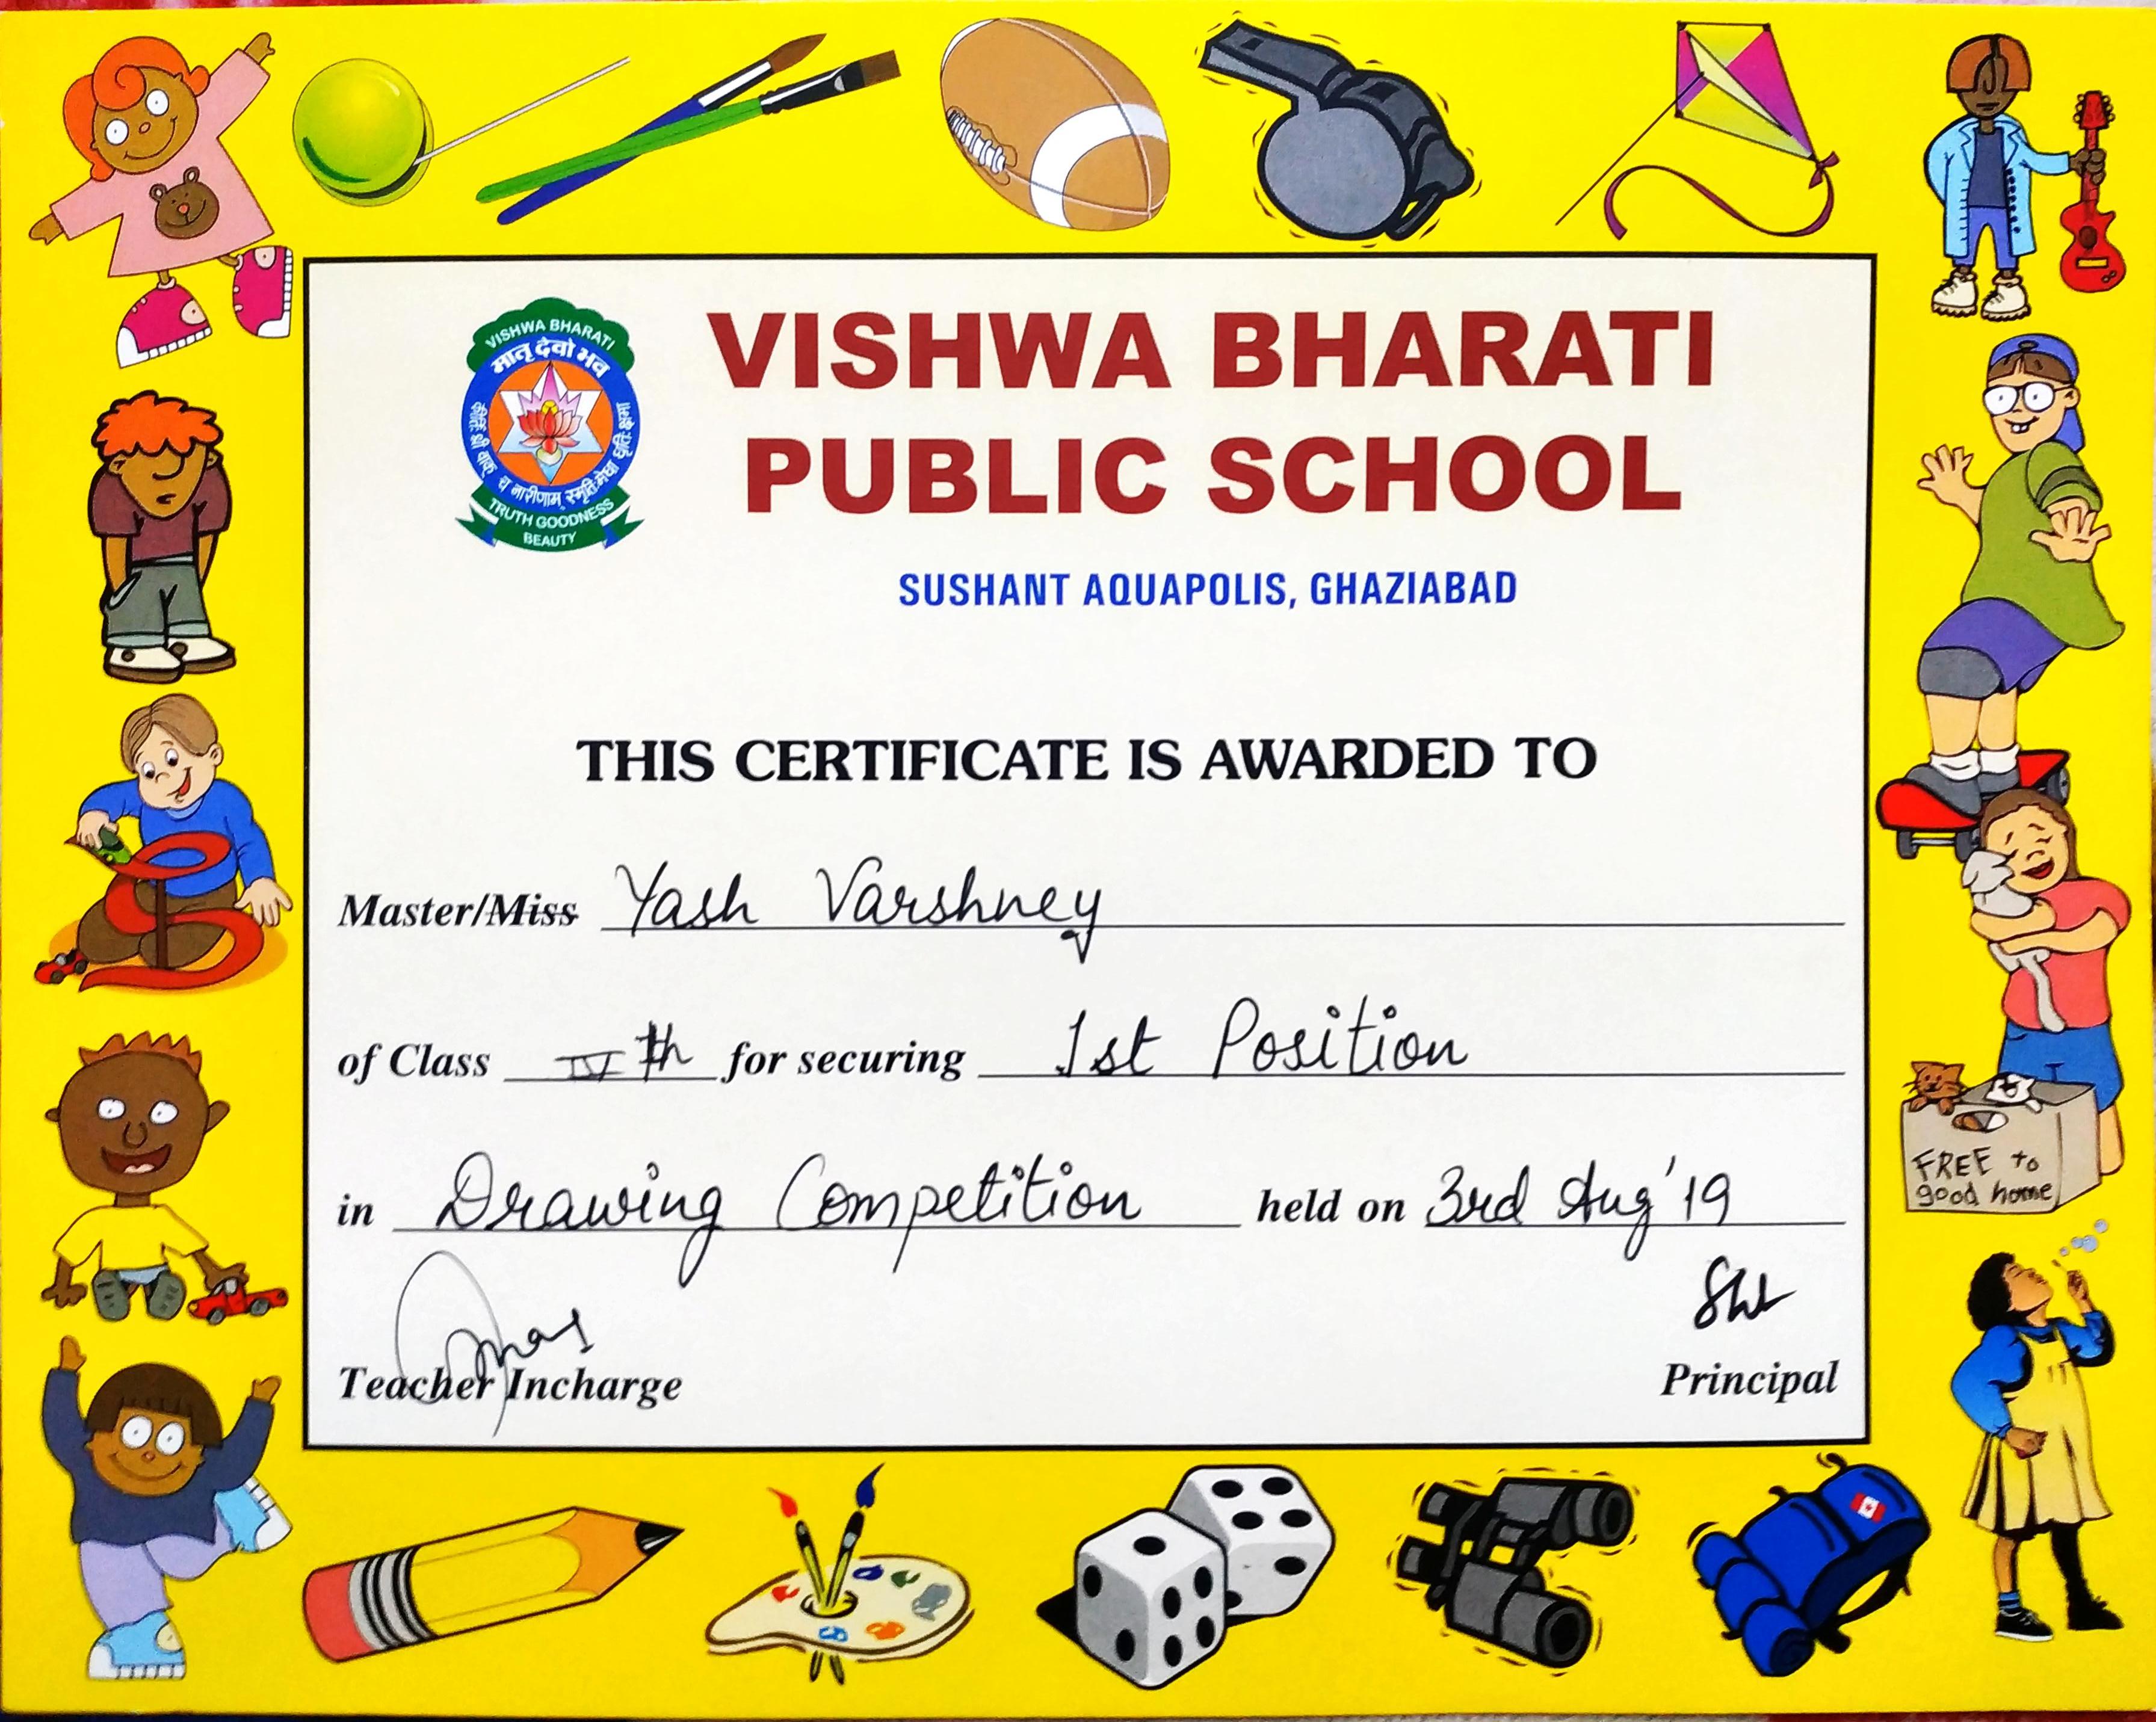 VISHWA BHARATI
मातृ देवो भव
कीर्तिः श्री वाक् च नारीणाम् स्मृतिः मेधा धृतिः क्षमा
TRUTH GOODNESS
BEAUTY
VISHWA BHARATI
PUBLIC SCHOOL
SUSHANT AQUAPOLIS, GHAZIABAD
THIS CERTIFICATE IS AWARDED TO
Master/Miss Yash Varshney
of Class IV th for securing 1st Position
in Drawing Competition held on 3rd Aug'19
Teacher Incharge
Principal
FREE to
good home